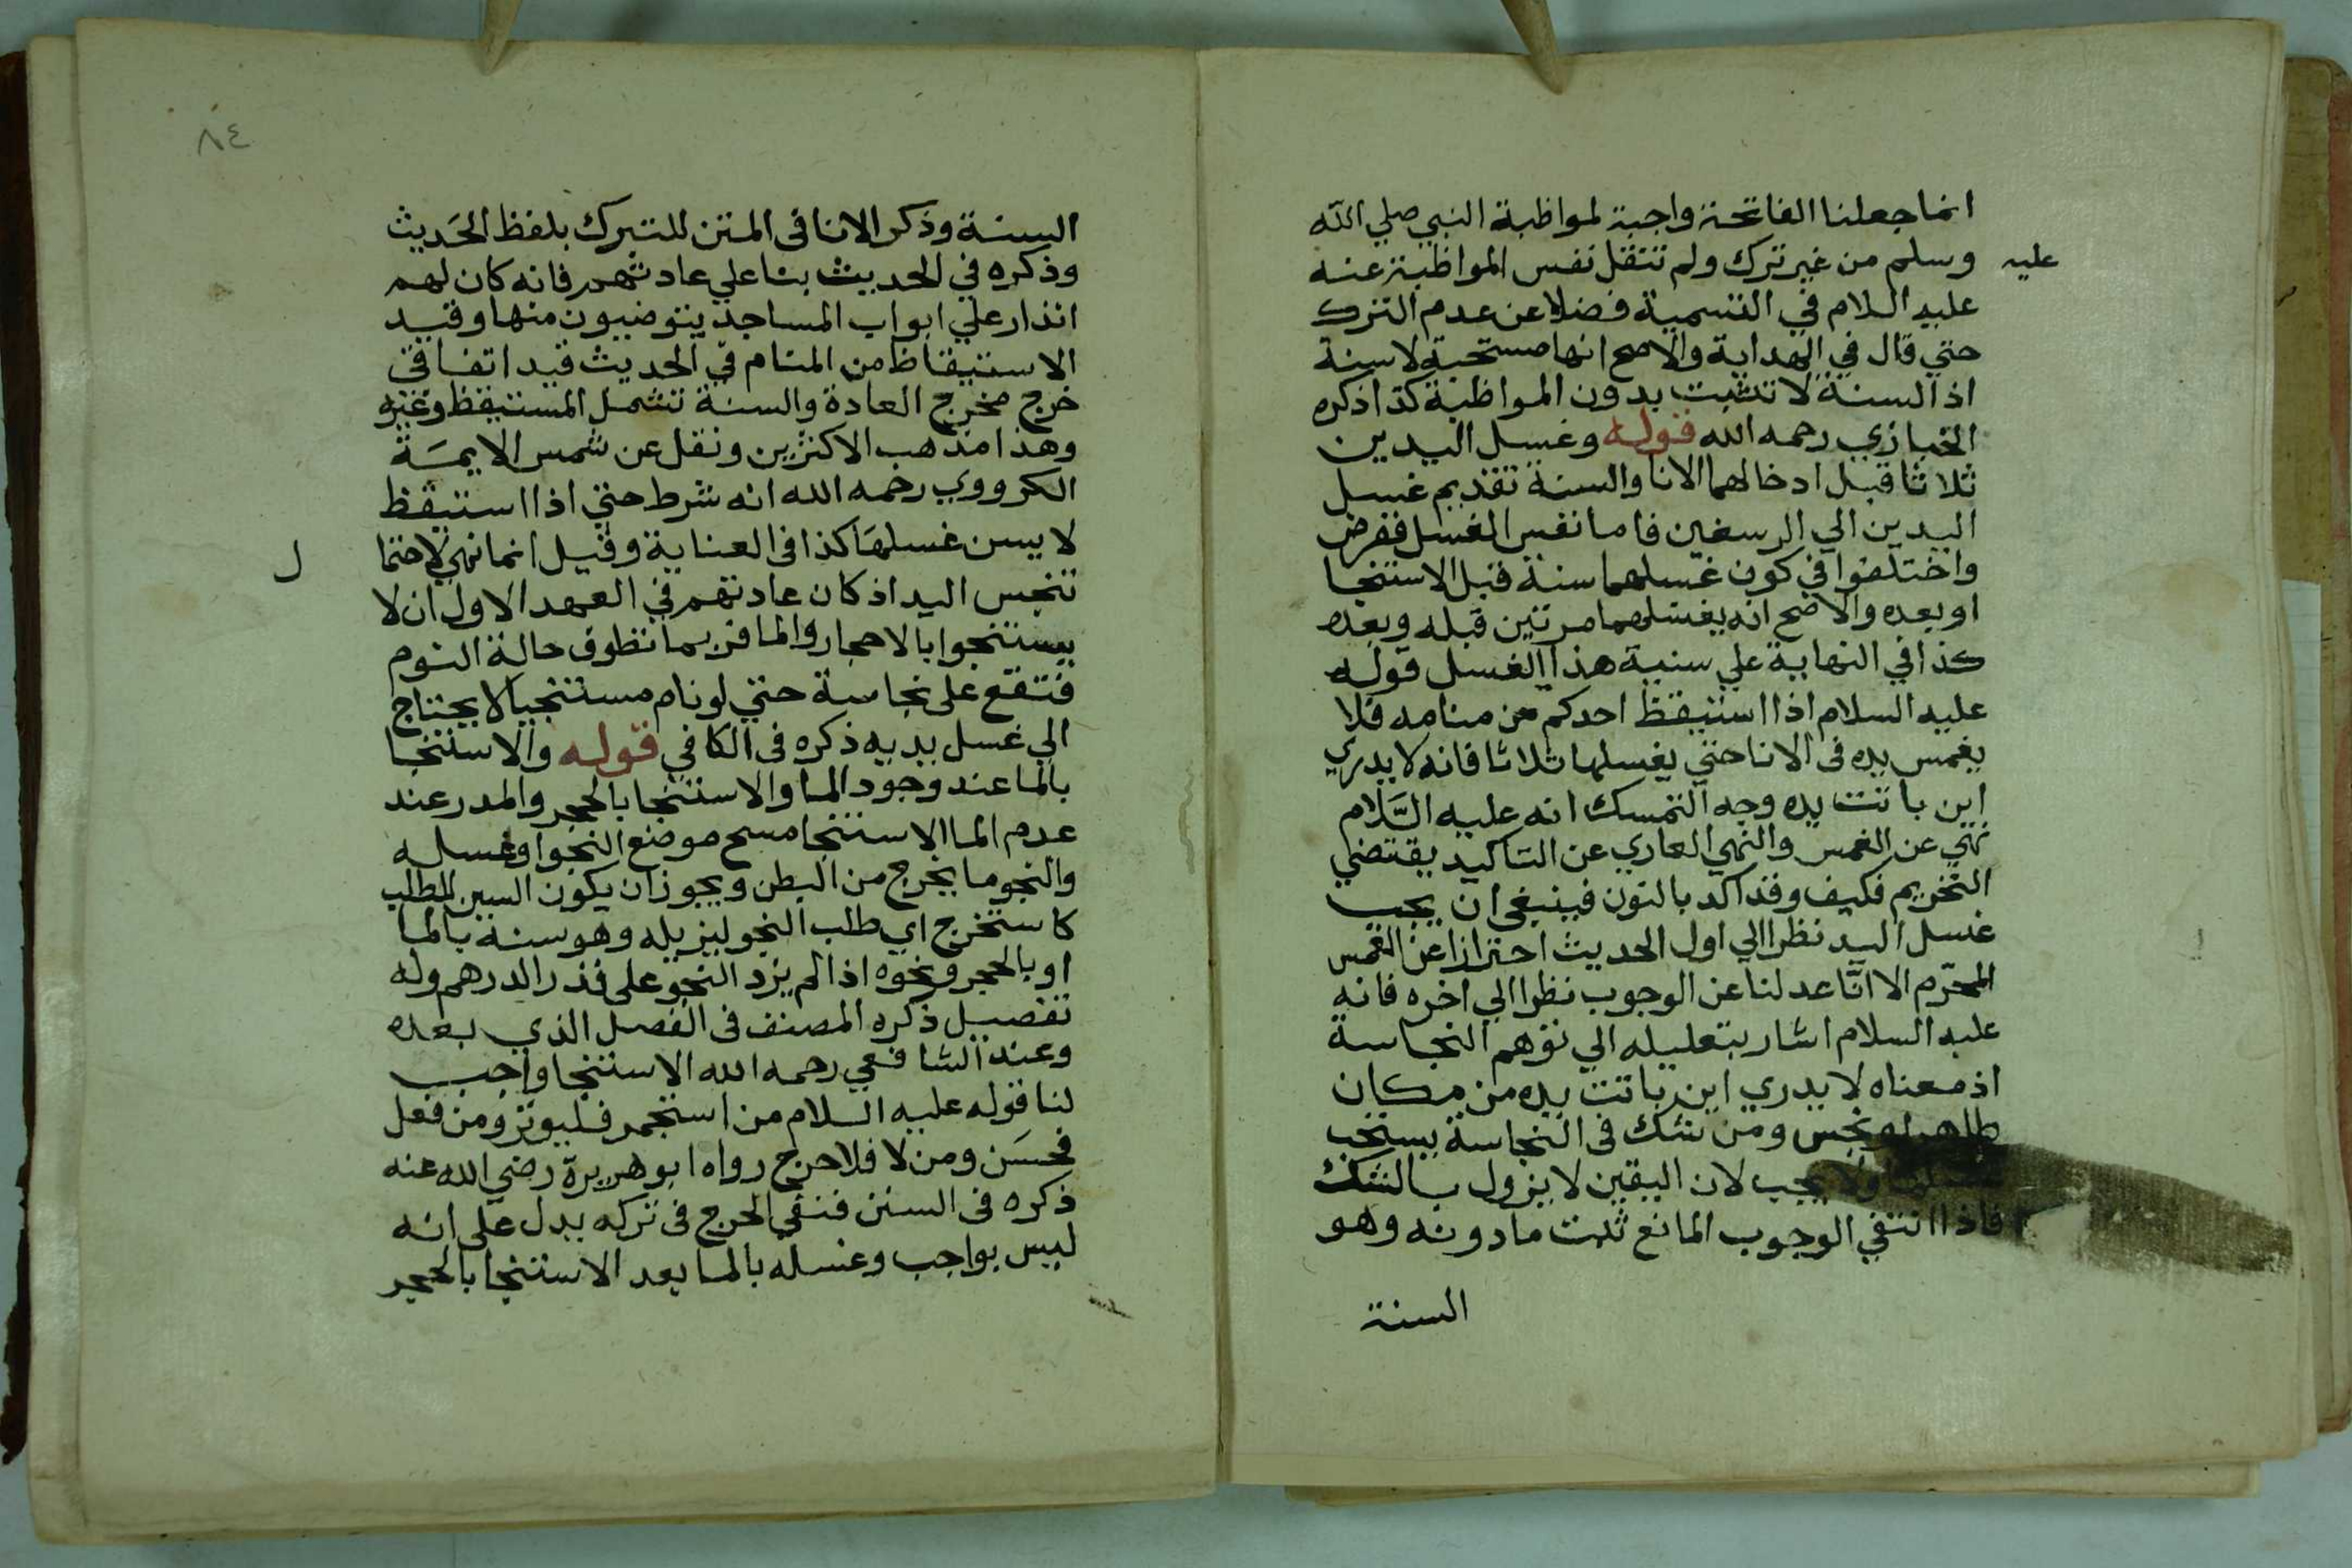 انما جعلنا الفاتحة واجبة لمواظبة النبي صلي الله
عليه
وسلم من غير ترك ولم تنتقل نفس المواظبة عنه
عليه السلام في التسمية فضلا عن عدم الترك
حتي قال في الهداية والاصح انها مستحبة لا سنة
اذ السنة لا تثبت بدون المواظبة كذا ذكره
الخبازي رحمه الله قوله وغسل اليدين
ثلاثا قبل ادخالهما الانا والسنة تقديم غسل
اليدين الي الرسغين فاما نفس الغسل ففرض
واختلفوا في كون غسلهما سنة قبل الاستنجا
او بعده والاصح انه يغسلهما مرتين قبله وبعده
كذا في النهاية علي سنية هذا الغسل قوله
عليه السلام اذا استيقظ احدكم من منامه فلا
يغمس يده في الانا حتي يغسلها ثلاثا فانه لا يدري
اين باتت يده وجه التمسك انه عليه السَّلام
نهي عن الغمس والنهي العاري عن التاكيد يقتضي
التحريم فكيف وقد اكد بالنون فينبغي ان يجب
غسل اليد نظرا الي اول الحديث احترازا عن الغمس
المحرّم الا انّا عدلنا عن الوجوب نظرا الي اخره فانه
عليه السلام اشار بتعليله الي توهم النجاسة
اذ معناه لا يدري اين باتت يده من مكان
طاهر او نجس ومن شك في النجاسة يستحب
غسلها ولا يجب لان اليقين لا يزول بالشك
فاذا انتفي الوجوب المانع ثبت ما دونه وهو
السنة
٨٤
السنة وذكر الانا في المتن للتبرك بلفظ الحَديث
وذكره في الحديث بنا علي عادتهم فانه كان لهم
انذار علي ابواب المساجد يتوضيون منها وقيد
الاستيقاظ من المنام في الحديث قيد اتفاقي
خرج مخرج العادة والسنة تشمل المستيقظ وغيره
وهذا مذهب الاكثرين ونقل عن شمس الايمَة
الكرووي رحمه الله انه شرط حتي اذا استيقظ
لا يسن غسلهَا كذا في العناية وقيل انما نهي لاحتما
ل
تنجس اليد اذ كان عادتهم في العهد الاول ان لا
يستنجوا بالاحجار والما فربما تطوف حالة النوم
فتقع على نجاسة حتي لو نام مستنجيا لا يحتاج
الي غسل يديه ذكره في الكافي قوله والاستنجا
بالما عند وجود الما والاستنجا بالحجر والمدر عند
عدم الما الاستنجا مسح موضع النجو او غسله
والنجو ما يخرج من البطن ويجوز ان يكون السين للطلب
كاستخرج اي طلب النجو ليزيله وهو سنة بالما
او بالحجر ونحوه اذا لم يزد النجو على قدر الدرهم وله
تفصيل ذكره المصنف في الفصل الذي بعده
وعند الشافعي رحمه الله الاستنجا واجب
لنا قوله عليه السلام من استجمر فليوتر ومن فعل
فحسَن ومن لا فلا حرج رواه ابو هريرة رضي الله عنه
ذكره في السنن فنفي الحرج في تركه يدل على انه
ليس بواجب وغسله بالما بعد الاستنجا بالحجر